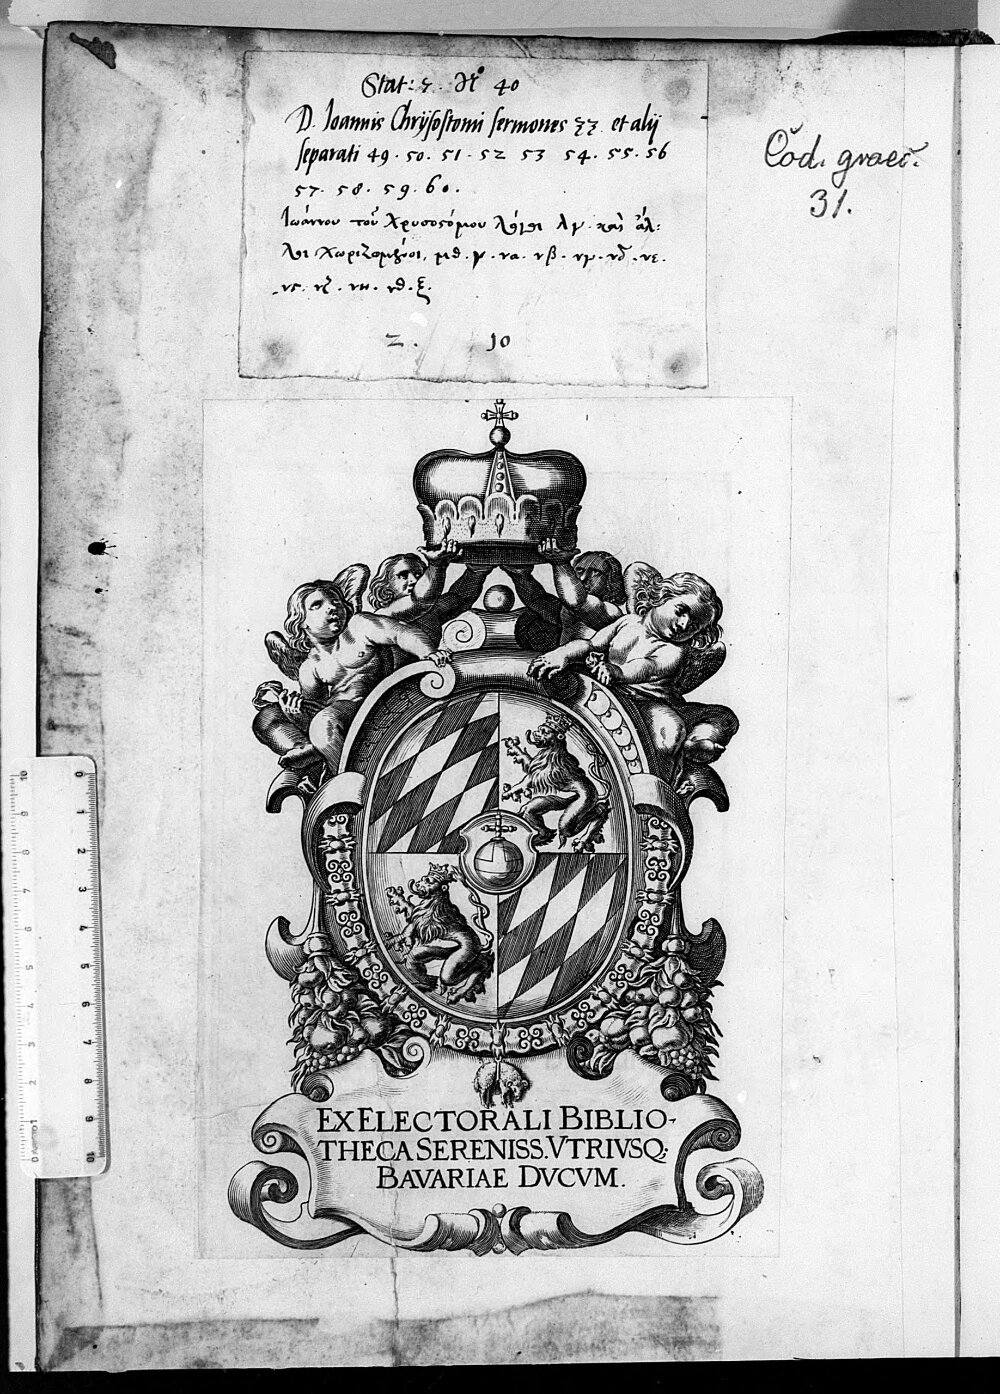 Stat: 5. No 40
D. Ioannis Chrysostomi sermones 33 et alij
separati 49. 50. 51. 52 53 54. 55. 56
57. 58. 59. 60.
Ἰωάννου τοῦ Χρυσοστόμου λόγοι λγ. καὶ ἄλ:
λοι χωριζομένοι, μθ. ν. να. νβ. νγ. νδ. νε.
νς. νζ. νη. νθ. ξ.
2. 10
Cod. graec.
31.
EX ELECTORALI BIBLIO-
THECA SERENISS. VTRIVSQ;
BAVARIAE DVCVM.
0 1 2 3 4 5 6 7 8 9 10
10 9 8 7 6 5 4 3 2 1 0